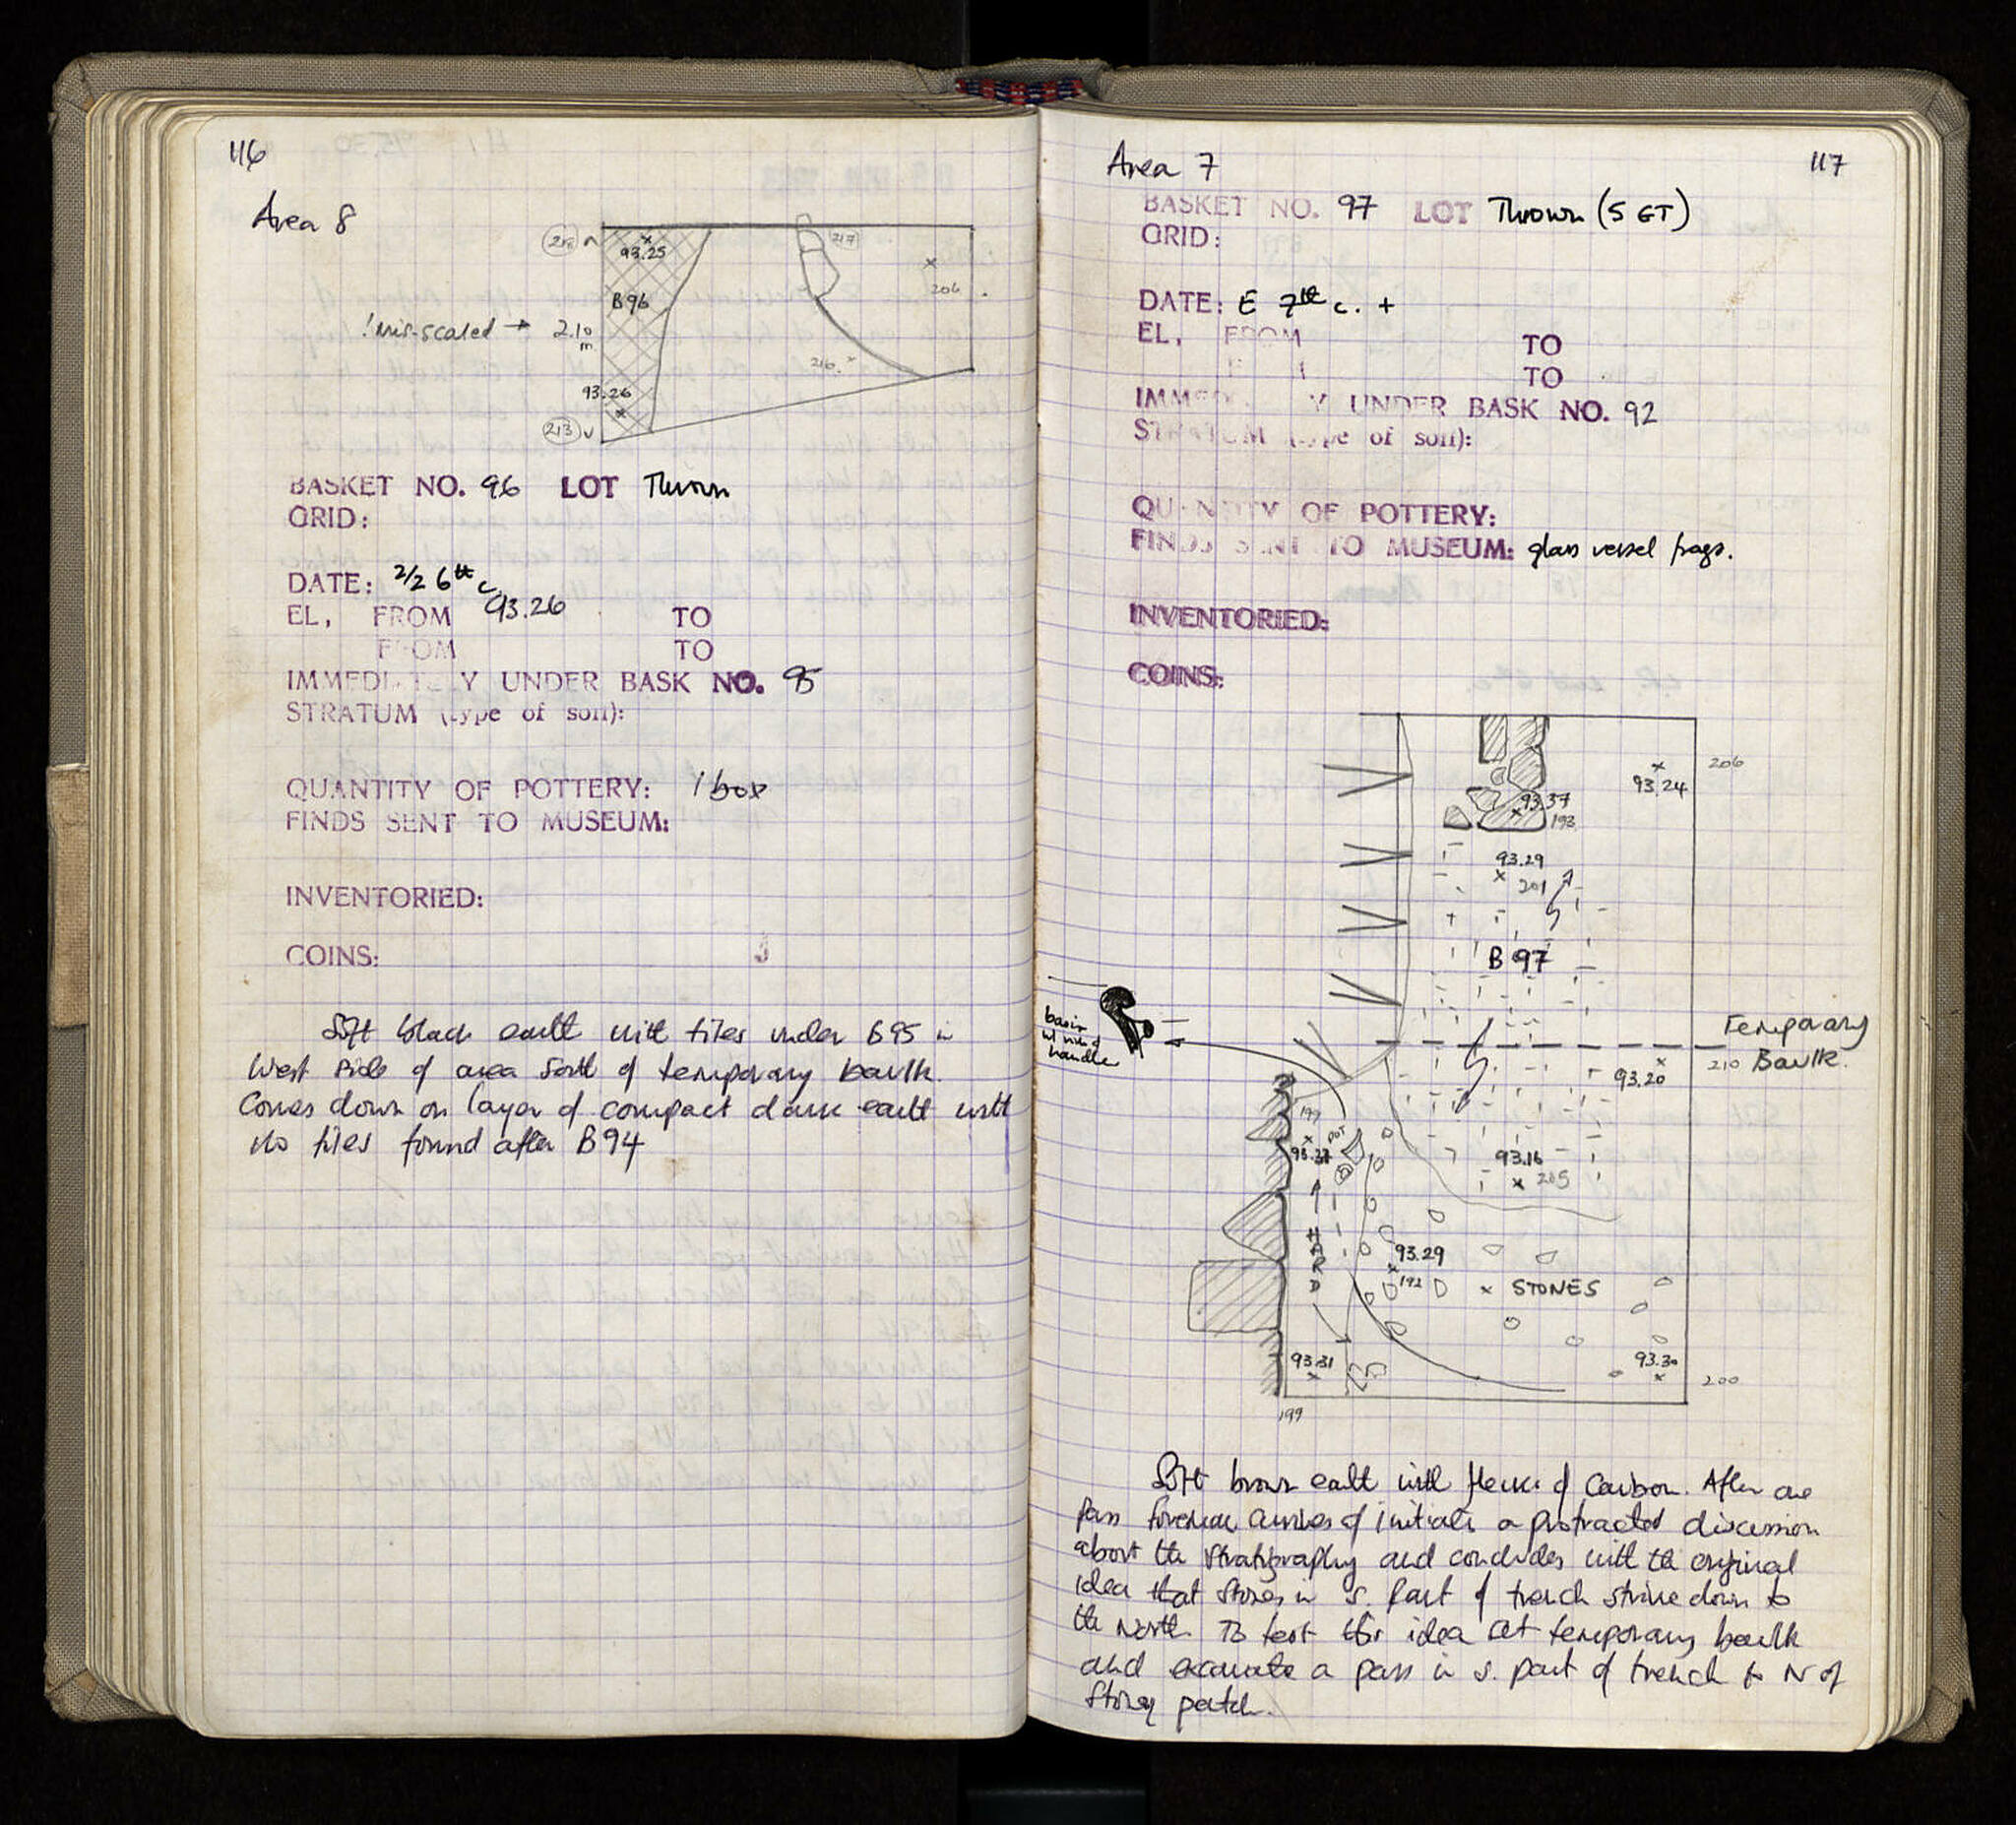 116
Area 8
218
93.25
217
206
B 96
! Mis-scaled → 2.10
m
216
93.26
213
BASKET NO. 96 LOT Thrown
GRID:
DATE: 2/2 6th c.
EL, FROM 93.26 TO
FROM TO
IMMEDIATELY UNDER BASK NO. 95
STRATUM (type of soil):
QUANTITY OF POTTERY: 1 box
FINDS SENT TO MUSEUM:
INVENTORIED:
COINS:
Soft black earth with tiles under B95 in
West side of area South of temporary baulk.
Comes down on layer of compact dark earth with
no tiles found after B94
Area 7
117
BASKET NO. 97 LOT Thrown (5 GT)
GRID:
DATE: E 7th c. +
EL, FROM TO
TO
IMMEDIATELY UNDER BASK NO. 92
STRATUM (type of soil):
QUANTITY OF POTTERY:
FINDS SENT TO MUSEUM: glass vessel frags.
INVENTORIED:
COINS:
206
93.24
93.37
193
93.29
201
B 97
basin
handle
Temporary
210 Baulk.
93.20
199
POT
93.16
205
HARD
93.29
192
STONES
93.31
93.30
200
199
Soft brown earth with flecks of Carbon. After one
pass foreman initiates a protracted discussion
about the stratigraphy and concludes with the original
idea that stones in S. part of trench strike down to
the North. To test this idea cut temporary baulk
and excavate a pass in S. part of trench to N of
Stoney patch.